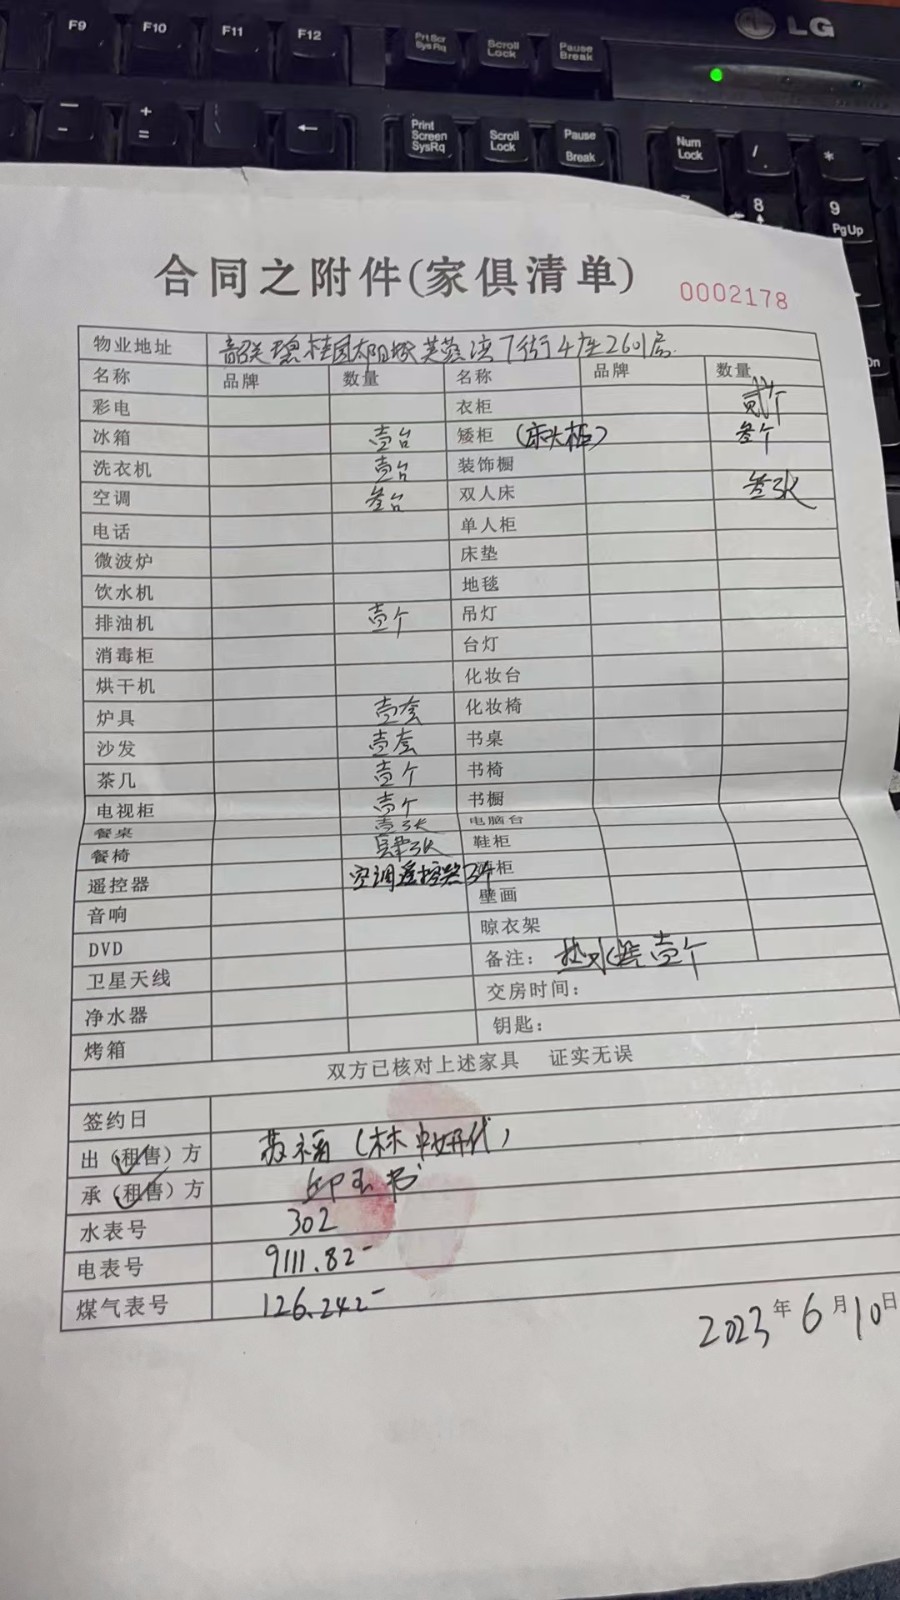 F9 F10 F11 F12 Prt Scr Sys Rq Scroll Lock Pause Break LG
- + = ← Print Screen SysRq Scroll Lock Pause Break Num Lock / *
8 9 PgUp
合同之附件(家俱清单) 0002178
物业地址 韶关碧桂园太阳城芙蓉湾7街4座2601房
名称 品牌 数量 名称 品牌 数量
彩电 衣柜 贰个
冰箱 壹台 矮柜 (床头柜) 叁个
洗衣机 壹台 装饰橱
空调 叁台 双人床 叁张
电话 单人柜
微波炉 床垫
饮水机 地毯
排油机 壹个 吊灯
消毒柜 台灯
烘干机 化妆台
炉具 壹套 化妆椅
沙发 壹套 书桌
茶几 壹个 书椅
电视柜 壹个 书橱
餐桌 壹张 电脑台
餐椅 肆张 鞋柜
遥控器 空调遥控器3个 柜
音响 壁画
DVD 晾衣架
卫星天线 备注: 热水器壹个
净水器 交房时间:
烤箱 钥匙:
双方已核对上述家具 证实无误
签约日
出(租售)方 苏福(林 代)
承(租售)方 邱玉书
水表号 302
电表号 9111.82-
煤气表号 126.242-
2023年6月10日